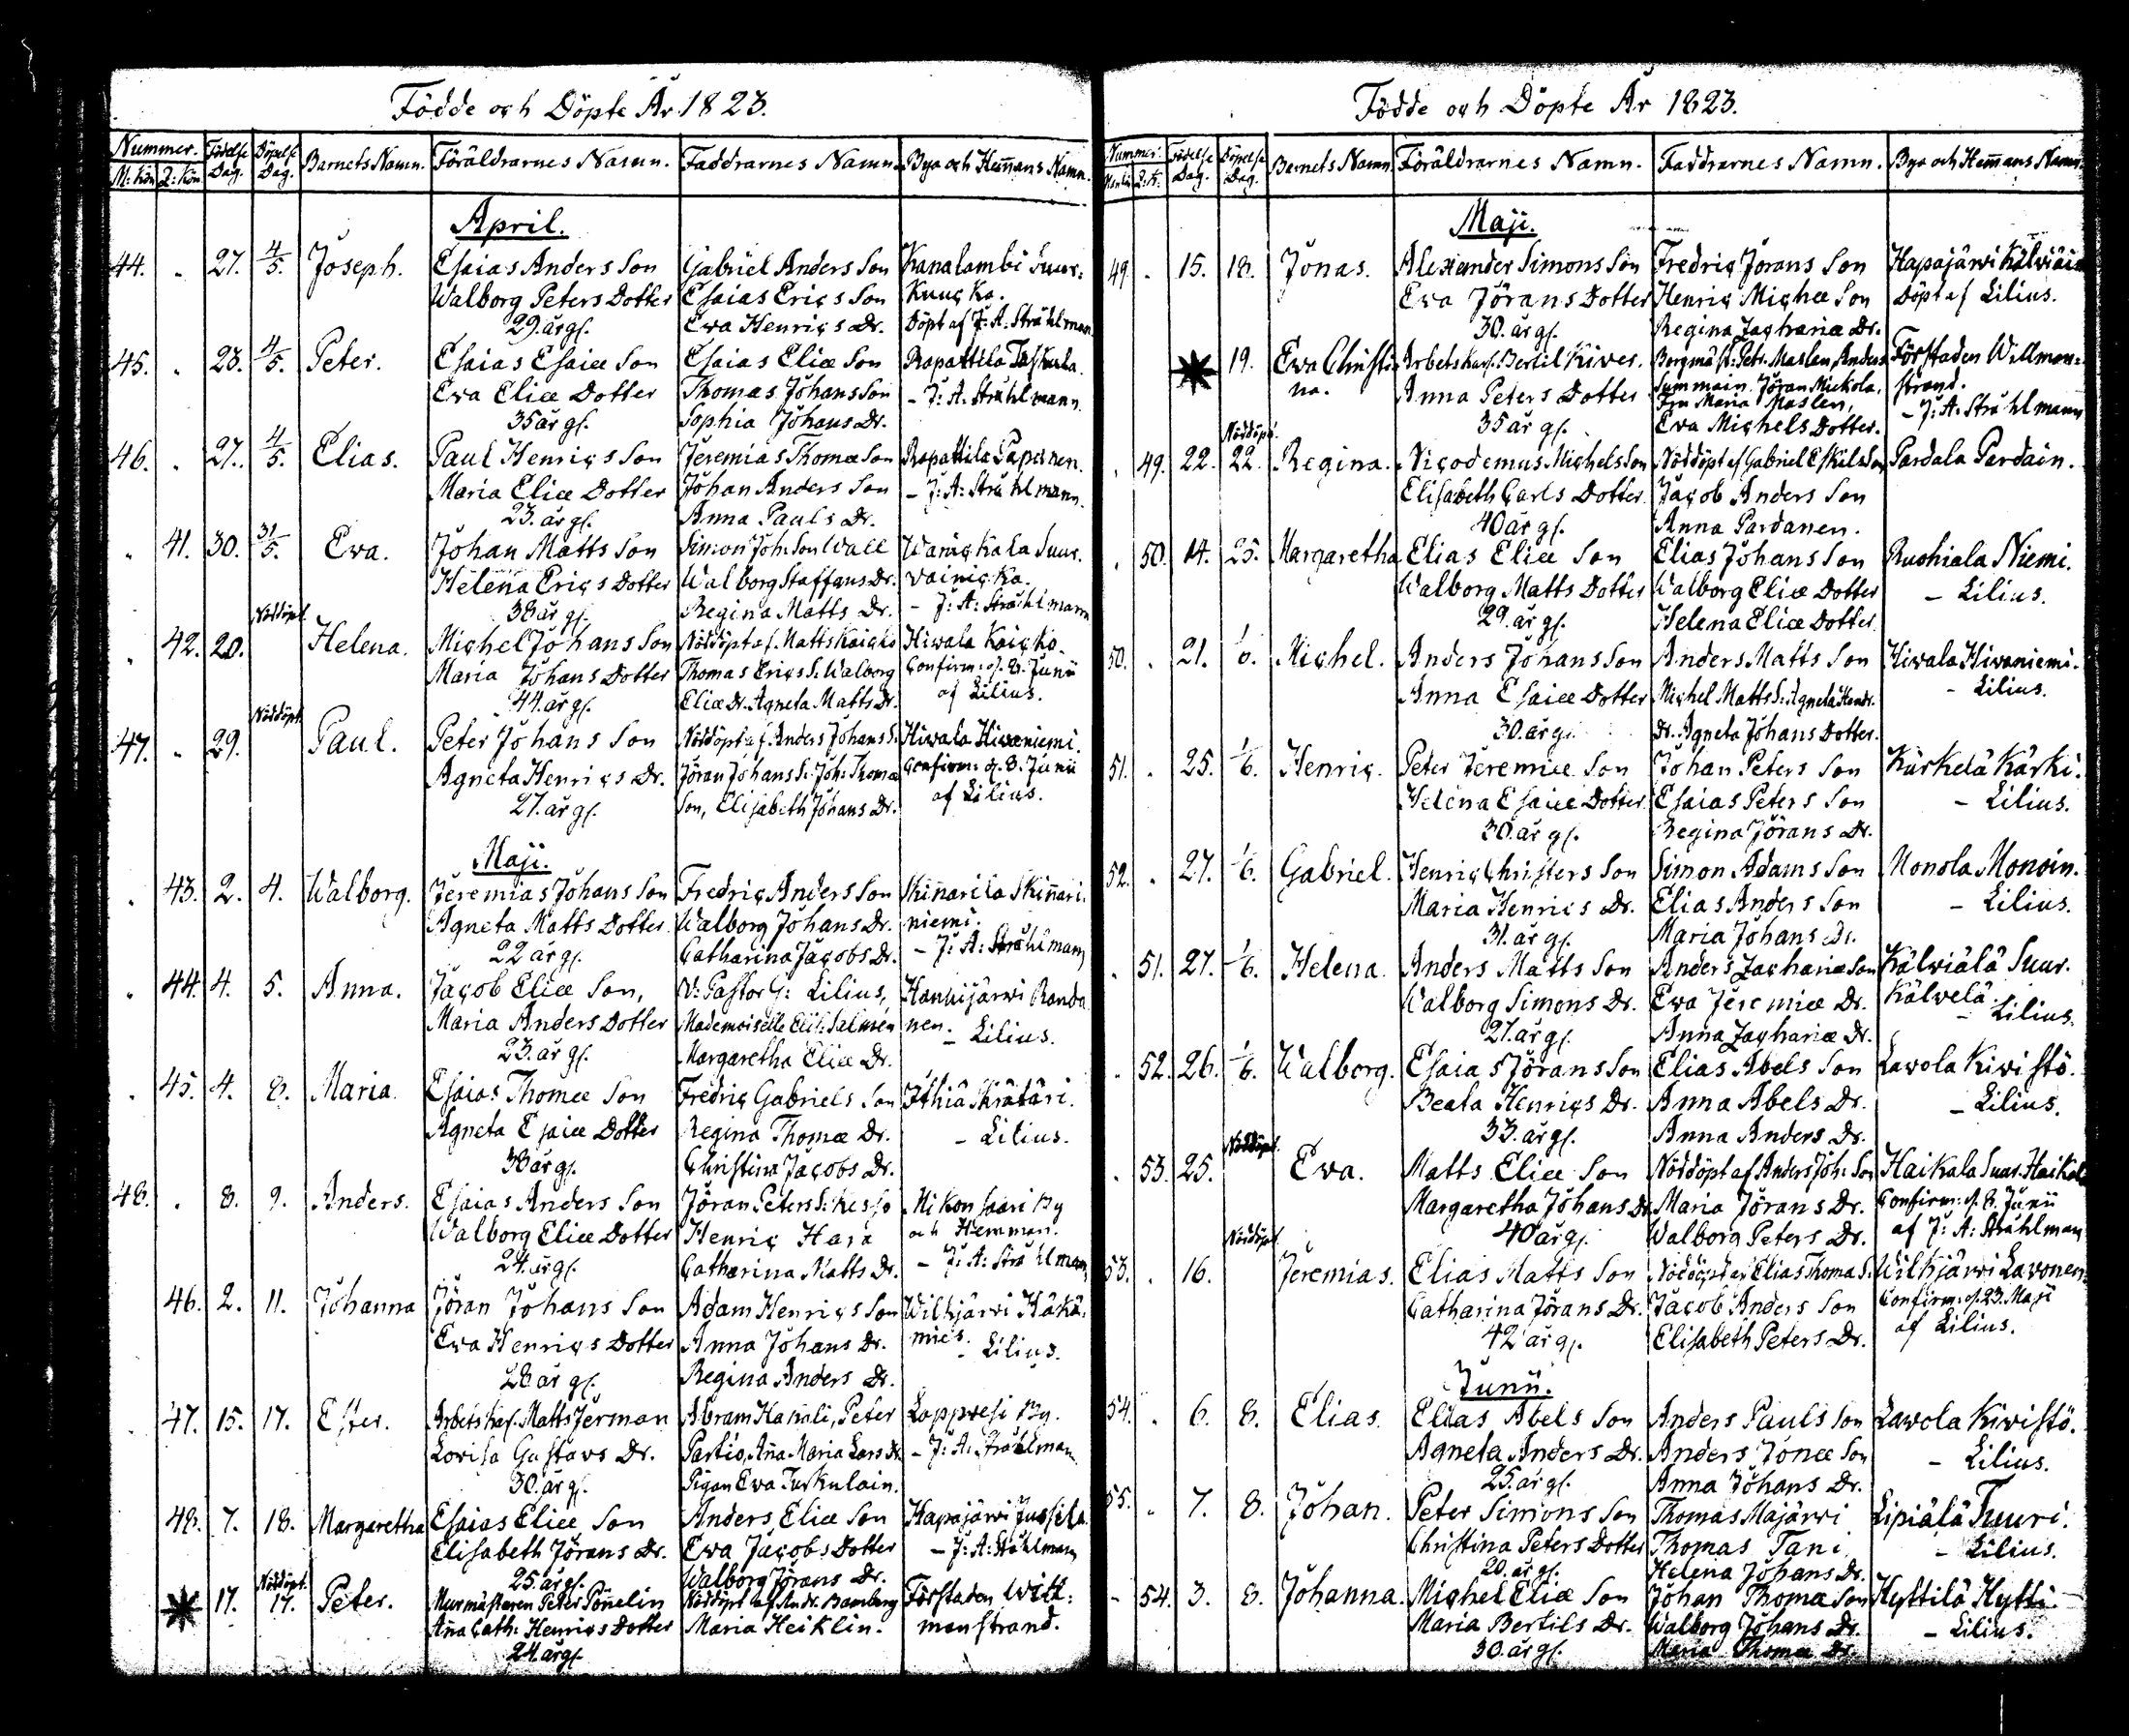 Födde och Döpte År 1823.
Nummer. Födelse Dag. Döpelse Dag. Barnets Namn. Föräldrarnes Namn. Faddrarnes Namn. Bya och Hem̄ans Namn.
M: Kön Q: Kön
April.
44. 27. 4/5. Joseph. Esaias Anders Son Gabriel Anders Son Kanalambi Suur:
Walborg Peters Dotter Esaias Erics Son Kuucka.
29. år gl. Ewa Henrics Dr. Döpt af J: A. Stråhlman
45. 23. 4/5. Peter. Esaias Esaiæ Son Esaias Eliæ Son Rapattila
Eva Eliæ Dotter Thomas Johans Son – J: A. Stråhlmann.
35 år gl. Sophia Johans Dr.
46. 27. 4/5. Elias. Paul Henrics Son Jeremias Thomæ Son Rapattila Paponen.
Maria Eliæ Dotter Johan Anders Son – J: A: Stråhlmann.
23. år gl. Anna Pauls Dr.
41. 30. 31/5. Eva. Johan Matts Son Simon Joh: Son Wall Warickala Suur.
Helena Erics Dotter Walborg Staffans Dr. vainicka.
38 år gl. Regina Matts Dr. – J: A: Stråhlmann
Nöddöpt.
42. 20. Helena. Michel Johans Son Nöddöpt af. Matts Kaicko Hiwala Kaicko.
Maria Johans Dotter Thomas Erics S. Walborg Confirm: d. 8. Junii
44. år gl. Eliæ Dr. Agneta Matts Dr. af Lilius.
Nöddöpt.
47. 29. Paul. Peter Johans Son Nöddöpt af. Anders Johans S. Hiwala Hiwaniemi.
Agneta Henrics Dr. Jöran Johans S: Joh: Thomæ Confirm: d. 8. Junii
27. år gl. Son, Elisabeth Johans Dr. af Lilius.
Maji.
43. 2. 4. Walborg. Jeremias Johans Son Fredric Anders Son Skin̄arila Skin̄ari.
Agneta Matts Dotter Walborg Johans Dr. niemi.
22 år gl. Catharina Jacobs Dr. – J: A: Stråhlman
44. 4. 5. Anna. Jacob Eliæ Son, V: Pastor G: Lilius, Hanhijärwi Randa
Maria Anders Dotter Mademoiselle Elis: Salmén nen.
23. år gl. Margaretha Eliæ Dr. – Lilius.
45. 4. 8. Maria. Esaias Thomæ Son Fredric Gabriels Son Ithiä Skrätäri.
Agneta Esaiæ Dotter Regina Thomæ Dr. – Lilius.
38 år gl. Christina Jacobs Dr.
48. 8. 9. Anders. Esaias Anders Son Jöran Peters S: Kesso Mikonsaari By
Walborg Eliæ Dotter Henric Hara och Hemman.
24. år gl. Catharina Matts Dr. – J: A: Stråhlman
46. 2. 11. Johanna Jöran Johans Son Adam Henrics Son Wilkjärwi Häkä:
Ewa Henrics Dotter Anna Johans Dr. mies.
28 år gl. Regina Anders Dr. – Lilius.
47. 15. 17. Ester. Arbetskarl. Matts Jerman Abram Hakali, Peter Lappvesi By.
Lovisa Gustavs Dr. Partio, An̄a Maria Lars Dr. – J: A: Stråhlman
30. år gl. Pigan Eva Turkulain.
48. 7. 18. Margaretha Esaias Eliæ Son Anders Eliæ Son Hapajärwi Jussila.
Elisabeth Jörans Dr. Ewa Jacobs Dotter – J: A: Stråhlman
25. år gl. Walborg Jörans Dr.
Nöddöpt.
17. 17. Peter. Murmästaren Peter Pön̄elin Nöddöpt af Andr. Bamberg Förstaden Will:
An̄a Cath: Henrics Dotter Maria Heiklin. manstrand.
24. år gl.
Födde och Döpte År 1823.
Nummer. Födelse Dag. Döpelse Dag. Barnets Namn. Föräldrarnes Namn. Faddrarnes Namn. Bya och Hem̄ans Namn.
Maji.
49. 15. 18. Jonas. Alexander Simons Son Fredric Jörans Son Hapajärwi Kälwiäin
Eva Jörans Dotter Henric Michæ Son Döpt af Lilius.
30. år gl. Regina Zachariæ Dr.
19. Ewa Christi- Arbetskarl. Bertil Kives. Borgmäst: Petr. Maslen, Anders Förstaden Willman:
na. Anna Peters Dotter Summain Jöran Mickola, strand.
Fru Maria Maslen, – J: A: Stråhlmann
35 år gl. Eva Michels Dotter.
Nöddöpt.
49. 22. 22. Regina. Nicodemus Michels Son Nöddöpt af Gabriel Eskils Son Pardala Pardain.
Elisabeth Carls Dotter Jacob Anders Son
40 år gl. Anna Pardanen.
50. 14. 25. Margaretha Elias Eliæ Son Elias Johans Son Ruohiala Niemi.
Walborg Matts Dotter Walborg Eliæ Dotter – Lilius.
29. år gl. Helena Eliæ Dotter
50. 21. 1/6. Michel. Anders Johans Son Anders Matts Son Hiwala Hiwaniemi.
Anna Esaiæ Dotter Michel Matts S: Agneta Henr. – Lilius.
30. år gl. Dr. Agneta Johans Dotter.
51. 25. 1/6. Henric. Peter Jeremiæ Son Johan Peters Son Kärkelä Kärki.
Helena Esaiæ Dotter Esaias Peters Son – Lilius.
30. år gl. Regina Jörans Dr.
52. 27. 1/6. Gabriel. Henric Christers Son Simon Adams Son Monola Monoin.
Maria Henrics Dr. Elias Anders Son – Lilius.
31. år gl. Maria Johans Dr.
51. 27. 1/6. Helena. Anders Matts Son Anders Zachariæ Son Kälwiälä Suur.
Walborg Simons Dr. Ewa Jeremiæ Dr. Kälvelä.
27. år gl. Anna Zachariæ Dr. – Lilius.
52. 26. 1/6. Walborg. Esaias Jörans Son Elias Abels Son Lavola Kivistö.
Beata Henrics Dr. Anna Abels Dr. – Lilius.
33. år gl. Anna Anders Dr.
Nöddöpt.
53. 25. Eva. Matts Eliæ Son Nöddöpt af Anders Joh: Son Haikala Suur. Haikala
Margaretha Johans Dr. Maria Jörans Dr. Confirm: d. 8. Junii
40 år gl. Walborg Peters Dr. af J: A: Stråhlman
Nöddöpt.
53. 16. Jeremias. Elias Matts Son Nöddöpt af Elias Thomæ S. Wilkjärwi Lavonen.
Catharina Jörans Dr. Jacob Anders Son Confirm: d. 23. Maji
42 år gl. Elisabeth Peters Dr. af Lilius.
Junii.
54. 6. 8. Elias. Elias Abels Son Anders Pauls Son Lawola Kivistö.
Agneta Anders Dr. Anders Jonæ Son – Lilius.
25. år gl. Anna Johans Dr.
55. 7. 8. Johan. Peter Simons Son Thomas Majärwi Lipiälä Tuuri.
Christina Peters Dotter Thomas Tani – Lilius.
20. år gl. Helena Johans Dr.
54. 3. 8. Johanna. Michel Eliæ Son Johan Thomæ Son Hyttilä Hytti.
Maria Bertils Dr. Walborg Johans Dr. – Lilius.
30. år gl. Maria Thomæ Dr.